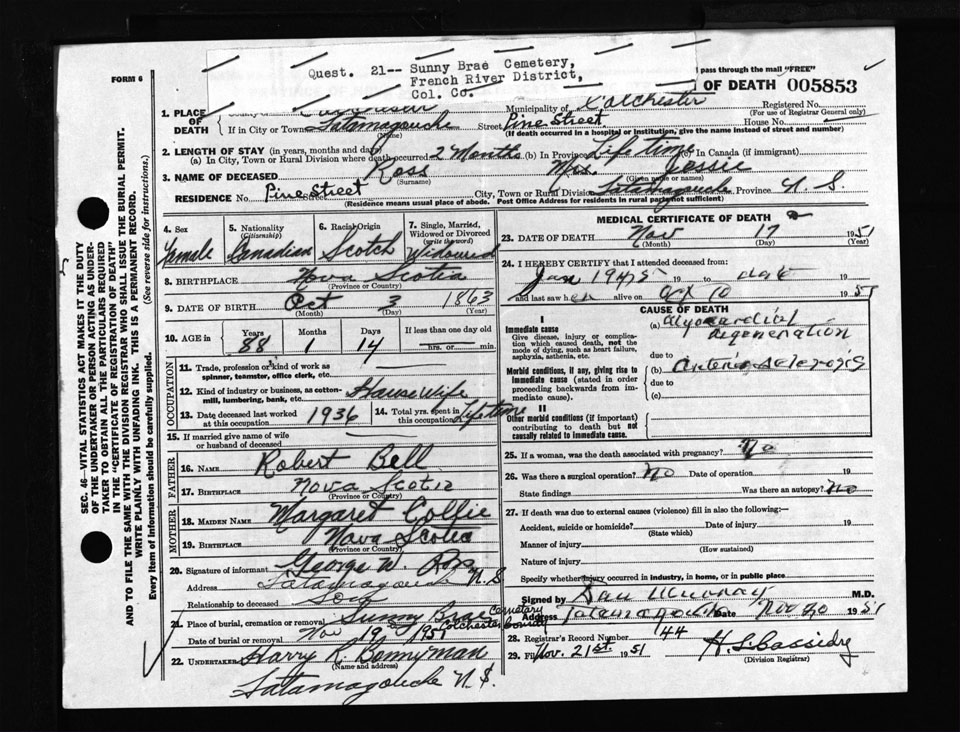 FORM 6
Quest. 21-- Sunny Brae Cemetery,
French River District,
Col. Co.
pass through the mail "FREE"
OF DEATH 005853
1. PLACE OF DEATH
Municipality of Colchester Registered No.
(For use of Registrar General only)
If in City or Town Tatamagouche Street Pine Street House No.
(Name) (If death occurred in a hospital or institution, give the name instead of street and number)
2. LENGTH OF STAY (in years, months and days)
(a) In City, Town or Rural Division where death occurred 2 Months (b) In Province Life time (c) In Canada (if immigrant)
3. NAME OF DECEASED Ross Mrs. Jessie
(Surname) (Given name or names)
RESIDENCE No. Pine Street City, Town or Rural Division Tatamagouche Province N. S.
(Residence means usual place of abode. Post Office Address for residents in rural parts not sufficient)
4. Sex Female
5. Nationality (Citizenship) Canadian
6. Racial Origin Scotch
7. Single, Married, Widowed or Divorced (write the word) Widowed
8. BIRTHPLACE Nova Scotia
(Province or Country)
9. DATE OF BIRTH Oct 3 1863
(Month) (Day) (Year)
10. AGE in Years 88 Months 1 Days 14 If less than one day old
hrs. or min.
OCCUPATION
11. Trade, profession or kind of work as spinner, teamster, office clerk, etc.
12. Kind of industry or business, as cotton-mill, lumbering, bank, etc. House Wife
13. Date deceased last worked at this occupation 1936
14. Total yrs. spent in this occupation Life time
15. If married give name of wife or husband of deceased
FATHER
16. NAME Robert Bell
17. BIRTHPLACE Nova Scotia
(Province or Country)
MOTHER
18. MAIDEN NAME Margaret Collie
19. BIRTHPLACE Nova Scotia
(Province or Country)
20. Signature of informant George W. Ross
Address Tatamagouche N. S
Relationship to deceased Son
21. Place of burial, cremation or removal Sunny Brae Cemetary
Colchester County
Date of burial or removal Nov 19 1951
22. UNDERTAKER Harry R. Bonnyman
(Name and address)
Tatamagouche N. S.
MEDICAL CERTIFICATE OF DEATH
23. DATE OF DEATH Nov 17 1951
(Month) (Day) (Year)
24. I HEREBY CERTIFY that I attended deceased from:
Jan 1945 19 to date 19
and last saw her alive on Oct 10 1951
CAUSE OF DEATH
I
Immediate cause
Give disease, injury or complication which caused death, not the mode of dying, such as heart failure, asphyxia, asthenia, etc.
(a) Myocardial
degeneration
due to
Morbid conditions, if any, giving rise to immediate cause (stated in order proceeding backwards from immediate cause).
(b) arterio sclerosis
due to
(c)
II
Other morbid conditions (if important) contributing to death but not causally related to immediate cause.
25. If a woman, was the death associated with pregnancy? No
26. Was there a surgical operation? No Date of operation 19
State findings Was there an autopsy? No
27. If death was due to external causes (violence) fill in also the following:—
Accident, suicide or homicide? Date of injury 19
(State which)
Manner of injury
(How sustained)
Nature of injury
Specify whether injury occurred in industry, in home, or in public place
Signed by Dan Murray M.D.
Address Tatamagouche Date Nov 20 1951
28. Registrar's Record Number 44
29. Filed Nov. 21st 1951 H. L. Cassidy
(Division Registrar)
SEC. 46—VITAL STATISTICS ACT MAKES IT THE DUTY
OF THE UNDERTAKER OR PERSON ACTING AS UNDER-
TAKER TO OBTAIN ALL THE PARTICULARS REQUIRED
IN THE "CERTIFICATE OF REGISTRATION OF DEATH"
AND TO FILE THE SAME WITH THE DIVISION REGISTRAR WHO SHALL ISSUE THE BURIAL PERMIT.
WRITE PLAINLY WITH UNFADING INK. THIS IS A PERMANENT RECORD.
Every item of information should be carefully supplied. (See reverse side for instructions.)